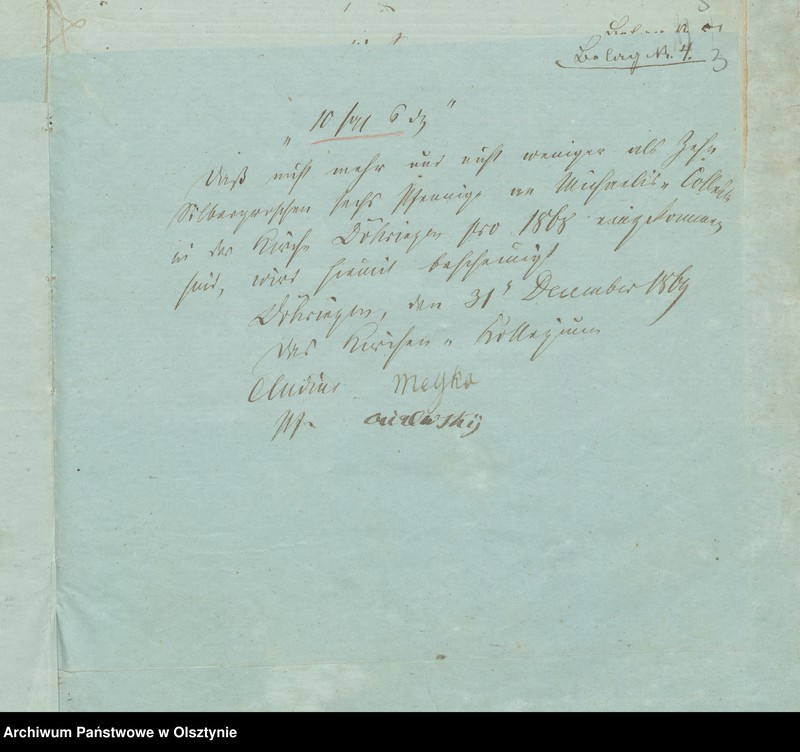 Belag Nr. 4. 3
"10 sgr 6 d"
Daß nicht mehr und nicht weniger als Zehn
Silbergroschen sechs Pfennige an Michaelis-Collecte
in der Kirche pro 1868 eingekommen
sind, wird hiemit bescheinigt
den 31ᵗ December 1869
Das Kirchen-Kollegium
Meyka
Pfr.
Archiwum Państwowe w Olsztynie